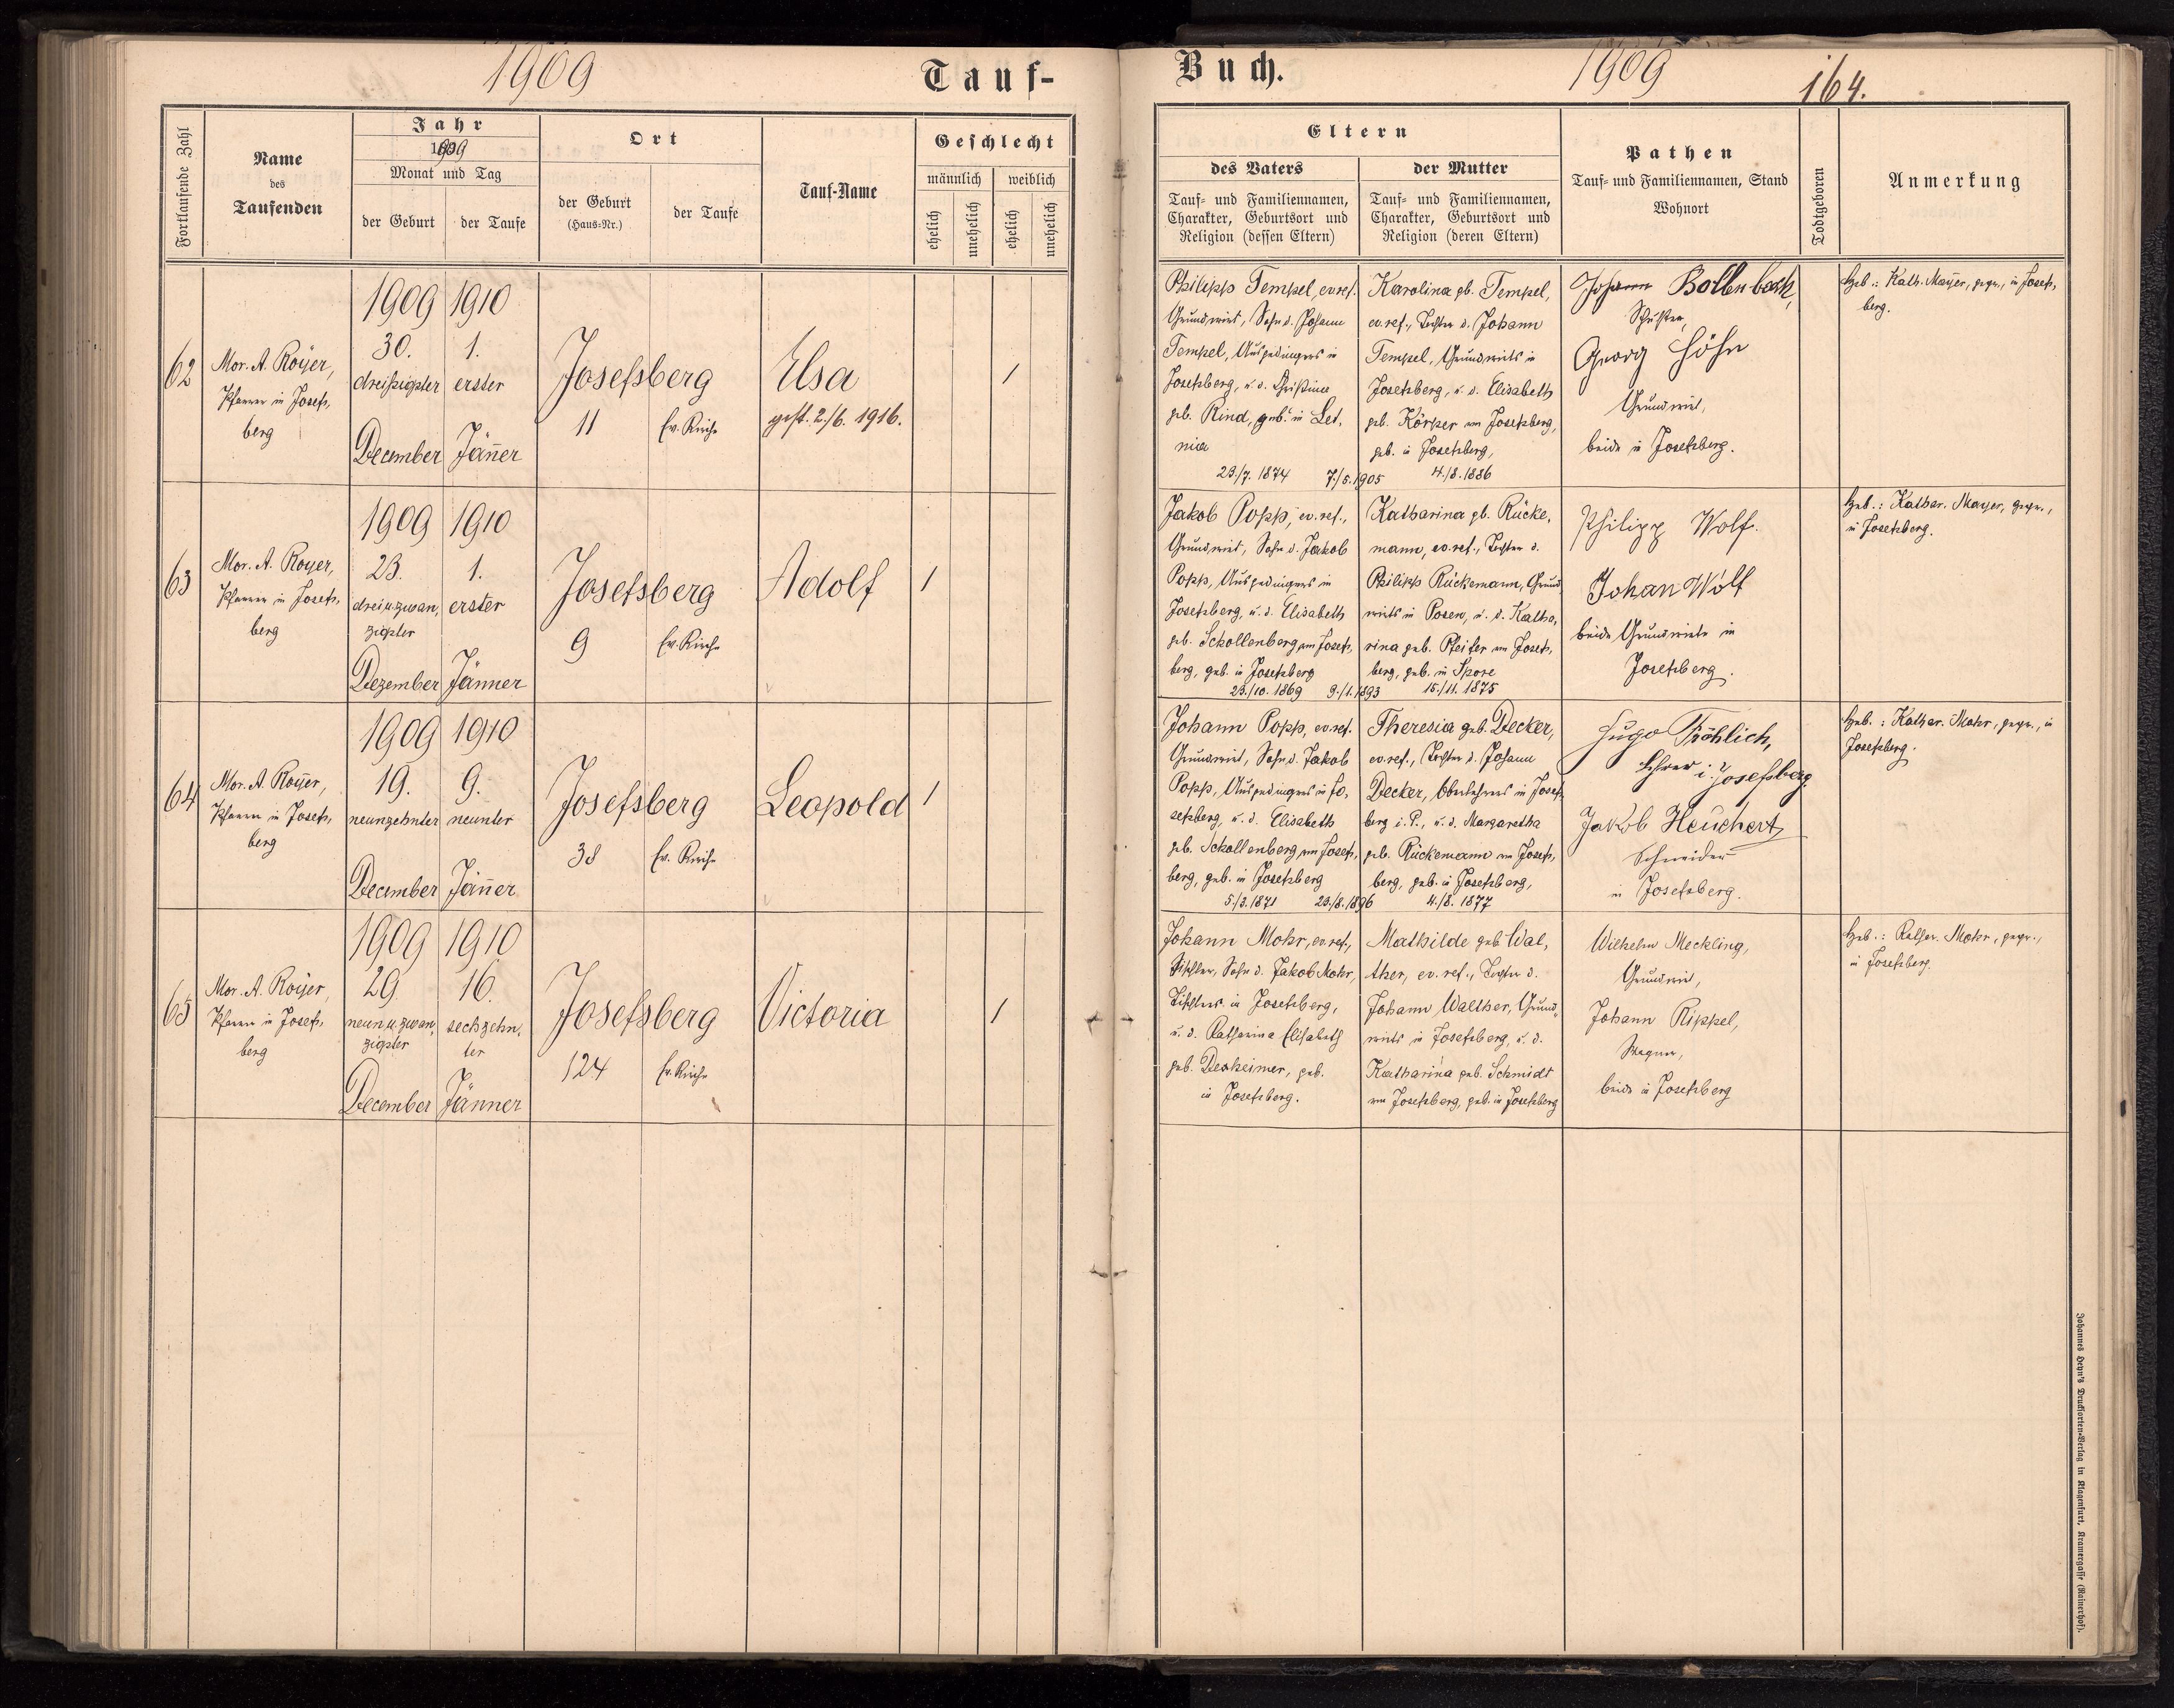 1909
Tauf-
Fortlaufende Zahl
Name
des
Taufenden
Jahr
1909
Monat und Tag
der Geburt
der Taufe
Ort
der Geburt
(Haus-Nr.)
der Taufe
Tauf-Name
Geschlecht
männlich
weiblich
ehelich
unehelich
ehelich
unehelich
62
Mor. A. Royer,
Pfarrer in Josefs-
berg
1909
30.
dreißigster
December
1910
1.
erster
Jänner
Josefsberg
11
Ev. Kirche
Elsa
gest. 2./6. 1916.
1
63
Mor. A. Royer,
Pfarrer in Josefs-
berg
1909
23.
drei u. zwan-
zigster
Dezember
1910
1.
erster
Jänner
Josefsberg
9
Ev. Kirche
Adolf
1
64
Mor. A. Royer,
Pfarrer in Josefs-
berg
1909
19.
neunzehnter
December
1910
9.
neunter
Jänner
Josefsberg
38
Ev. Kirche
Leopold
1
65
Mor. A. Royer,
Pfarrer in Josefs-
berg
1909
29.
neun u. zwan-
zigster
December
1910
16.
sechzehn-
ter
Jänner
Josefsberg
124
Ev. Kirche
Victoria
1
Buch.
1909
164.
Eltern
des Vaters
Tauf- und Familiennamen,
Charakter, Geburtsort und
Religion (dessen Eltern)
der Mutter
Tauf- und Familiennamen,
Charakter, Geburtsort und
Religion (deren Eltern)
Pathen
Tauf- und Familiennamen, Stand
Wohnort
Todtgeboren
Anmerkung
Philipp Tempel, ev. ref.
Grundwirt, Sohn d. Johann
Tempel, Ausgedingers in
Josefsberg, u. d. Christina
geb. Rind, geb. in Let-
nia
23./7. 1874
7./5. 1905
Karolina gb. Tempel,
ev. ref., Tochter d. Johann
Tempel, Grundwirts in
Josefsberg, u. d. Elisabeth
geb. Körper von Josefsberg,
geb. in Josefsberg,
4./8. 1886
Johann Bollenbach,
Schuster,
Georg Höhn
Grundwirt,
beide in Josefsberg.
Heb.: Kath. Mayer, gepr., in Josefs-
berg.
Jakob Popp, ev. ref.,
Grundwirt, Sohn d. Jakob
Popp, Ausgedingers in
Josefsberg, u. d. Elisabeth
geb. Schollenberg von Josefs-
berg, geb. in Josefsberg
23./10. 1869
9./1. 1893
Katharina gb. Rücke-
mann, ev. ref., Tochter d.
Philipp Rückemann, Grund-
wirts in Posen, u. d. Katha-
rina geb. Pfeifer von Josefs-
berg, geb. in Spore
15./11. 1875
Philipp Wolf.
Johan Wolf
beide Grundwirte in
Josefsberg.
Heb.: Kathar. Mayer, gepr.,
in Josefsberg.
Johann Popp, ev. ref.
Grundwirt, Sohn d. Jakob
Popp, Ausgedingers in Jo-
sefsberg, u. d. Elisabeth
geb. Schollenberg von Josefs-
berg, geb. in Josefsberg
5./3. 1871
23./8. 1896
Theresia geb. Decker,
ev. ref., Tochter d. Johann
Decker, Oberlehrers in Josefs-
berg i. P., u. d. Margaretha
geb. Rückemann von Josefs-
berg, geb. in Josefsberg,
4./8. 1877
Hugo Fröhlich,
Lehrer i. Josefsberg.
Jakob Heuchert,
Schneider
in Josefsberg.
Heb.: Kathar. Mohr, gepr., in
Josefsberg.
Johann Mohr, ev. ref.,
Tischler, Sohn d. Jakob Mohr,
Tischlers in Josefsberg,
u. d. Katharina Elisabeth
geb. Desheimer, geb.
in Josefsberg.
Mathilde geb. Wal-
ther, ev. ref., Tochter d.
Johann Walther, Grund-
wirts in Josefsberg, u. d.
Katharina geb. Schmidt
von Josefsberg, geb. in Josefsberg
Wilhelm Meckling,
Grundwirt,
Johann Rippel,
Wagner,
beide in Josefsberg
Heb.: Kathar. Mohr, gepr.,
in Josefsberg.
Johannes Heyn's Drucksorten-Verlag in Klagenfurt, Kramergasse (Rainerhof).